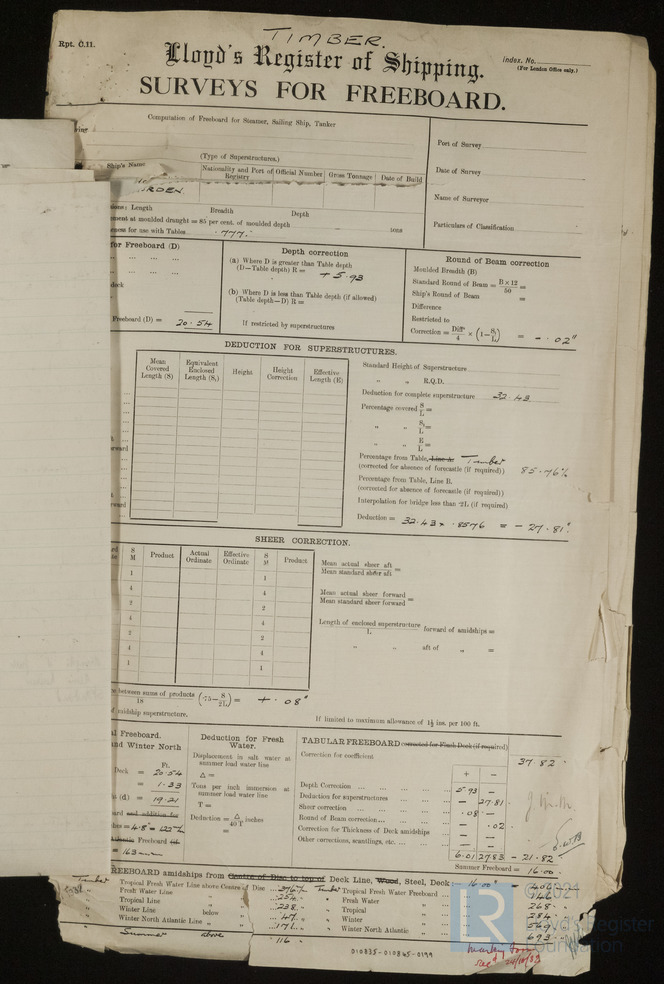 TIMBER.
Rpt. C.11.
Lloyd's Register of Shipping.
Index. No.
(For London Office only.)
SURVEYS FOR FREEBOARD.
Computation of Freeboard for Steamer, Sailing Ship, Tanker
Port of Survey
(Type of Superstructures.)
Ship's Name
Nationality and Port of Registry
Official Number
Gross Tonnage
Date of Build
Date of Survey
RDEN.
Name of Surveyor
Length Breadth Depth
at moulded draught = 85 per cent. of moulded depth tons
for use with Tables .777.
Particulars of Classification
for Freeboard (D)
Freeboard (D) = 20.54
Depth correction
(a) Where D is greater than Table depth
(D—Table depth) R = + 5.93
(b) Where D is less than Table depth (if allowed)
(Table depth—D) R =
If restricted by superstructures
Round of Beam correction
Moulded Breadth (B)
Standard Round of Beam = B × 12 / 50 =
Ship's Round of Beam =
Difference
Restricted to
Correction = Diff. / 4 × (1 − S₁ / L) = - .02"
DEDUCTION FOR SUPERSTRUCTURES.
Mean Covered Length (S)
Equivalent Enclosed Length (S₁)
Height
Height Correction
Effective Length (E)
Standard Height of Superstructure
" " R.Q.D.
Deduction for complete superstructure 32.43
Percentage covered S / L =
" S₁ / L =
" E / L =
Percentage from Table, Line A. Timber
(corrected for absence of forecastle (if required)) 85.76%
Percentage from Table, Line B.
(corrected for absence of forecastle (if required))
Interpolation for bridge less than ·2L (if required)
Deduction = 32.43 × .8576 = - 27.81"
SHEER CORRECTION.
S M
Product
Actual Ordinate
Effective Ordinate
S M
Product
1 1
4 4
2 2
4 4
2 2
4 4
1 1
Mean actual sheer aft / Mean standard sheer aft =
Mean actual sheer forward / Mean standard sheer forward =
Length of enclosed superstructure / L forward of amidships =
" " aft of " =
between sums of products / 18 (·75 − S / 2L) = + .08"
midship superstructure.
If limited to maximum allowance of 1½ ins. per 100 ft.
Freeboard.
and Winter North
Ft.
Deck = 20.54
= 1.33
(d) = 19.21
= 4.8" = 122
Freeboard
= 163
Deduction for Fresh Water.
Displacement in salt water at summer load water line
Δ =
Tons per inch immersion at summer load water line
T =
Deduction = Δ / 40 T inches
=
TABULAR FREEBOARD corrected for Flush Deck (if required)
Correction for coefficient 37.82
+ −
Depth Correction 5.93 −
Deduction for superstructures − 27.81
Sheer correction .08 −
Round of Beam correction − .02
Correction for Thickness of Deck amidships − −
Other corrections, scantlings, etc. − −
6.01 27.83 - 21.82
Summer Freeboard = 16.00
FREEBOARD amidships from Centre of Disc to top of Deck Line, Wood, Steel, Deck: 16.00"
Timber
Tropical Fresh Water Line above Centre of Disc 376 Timber Tropical Fresh Water Freeboard
Fresh Water Line " " Fresh Water "
Tropical Line " 238 " Tropical " 268
Winter Line below " 47 " Winter " 284
Winter North Atlantic Line " " 171 " Winter North Atlantic "
Summer above 116
010835-010865-0199
©2021
Lloyd's Register
Foundation